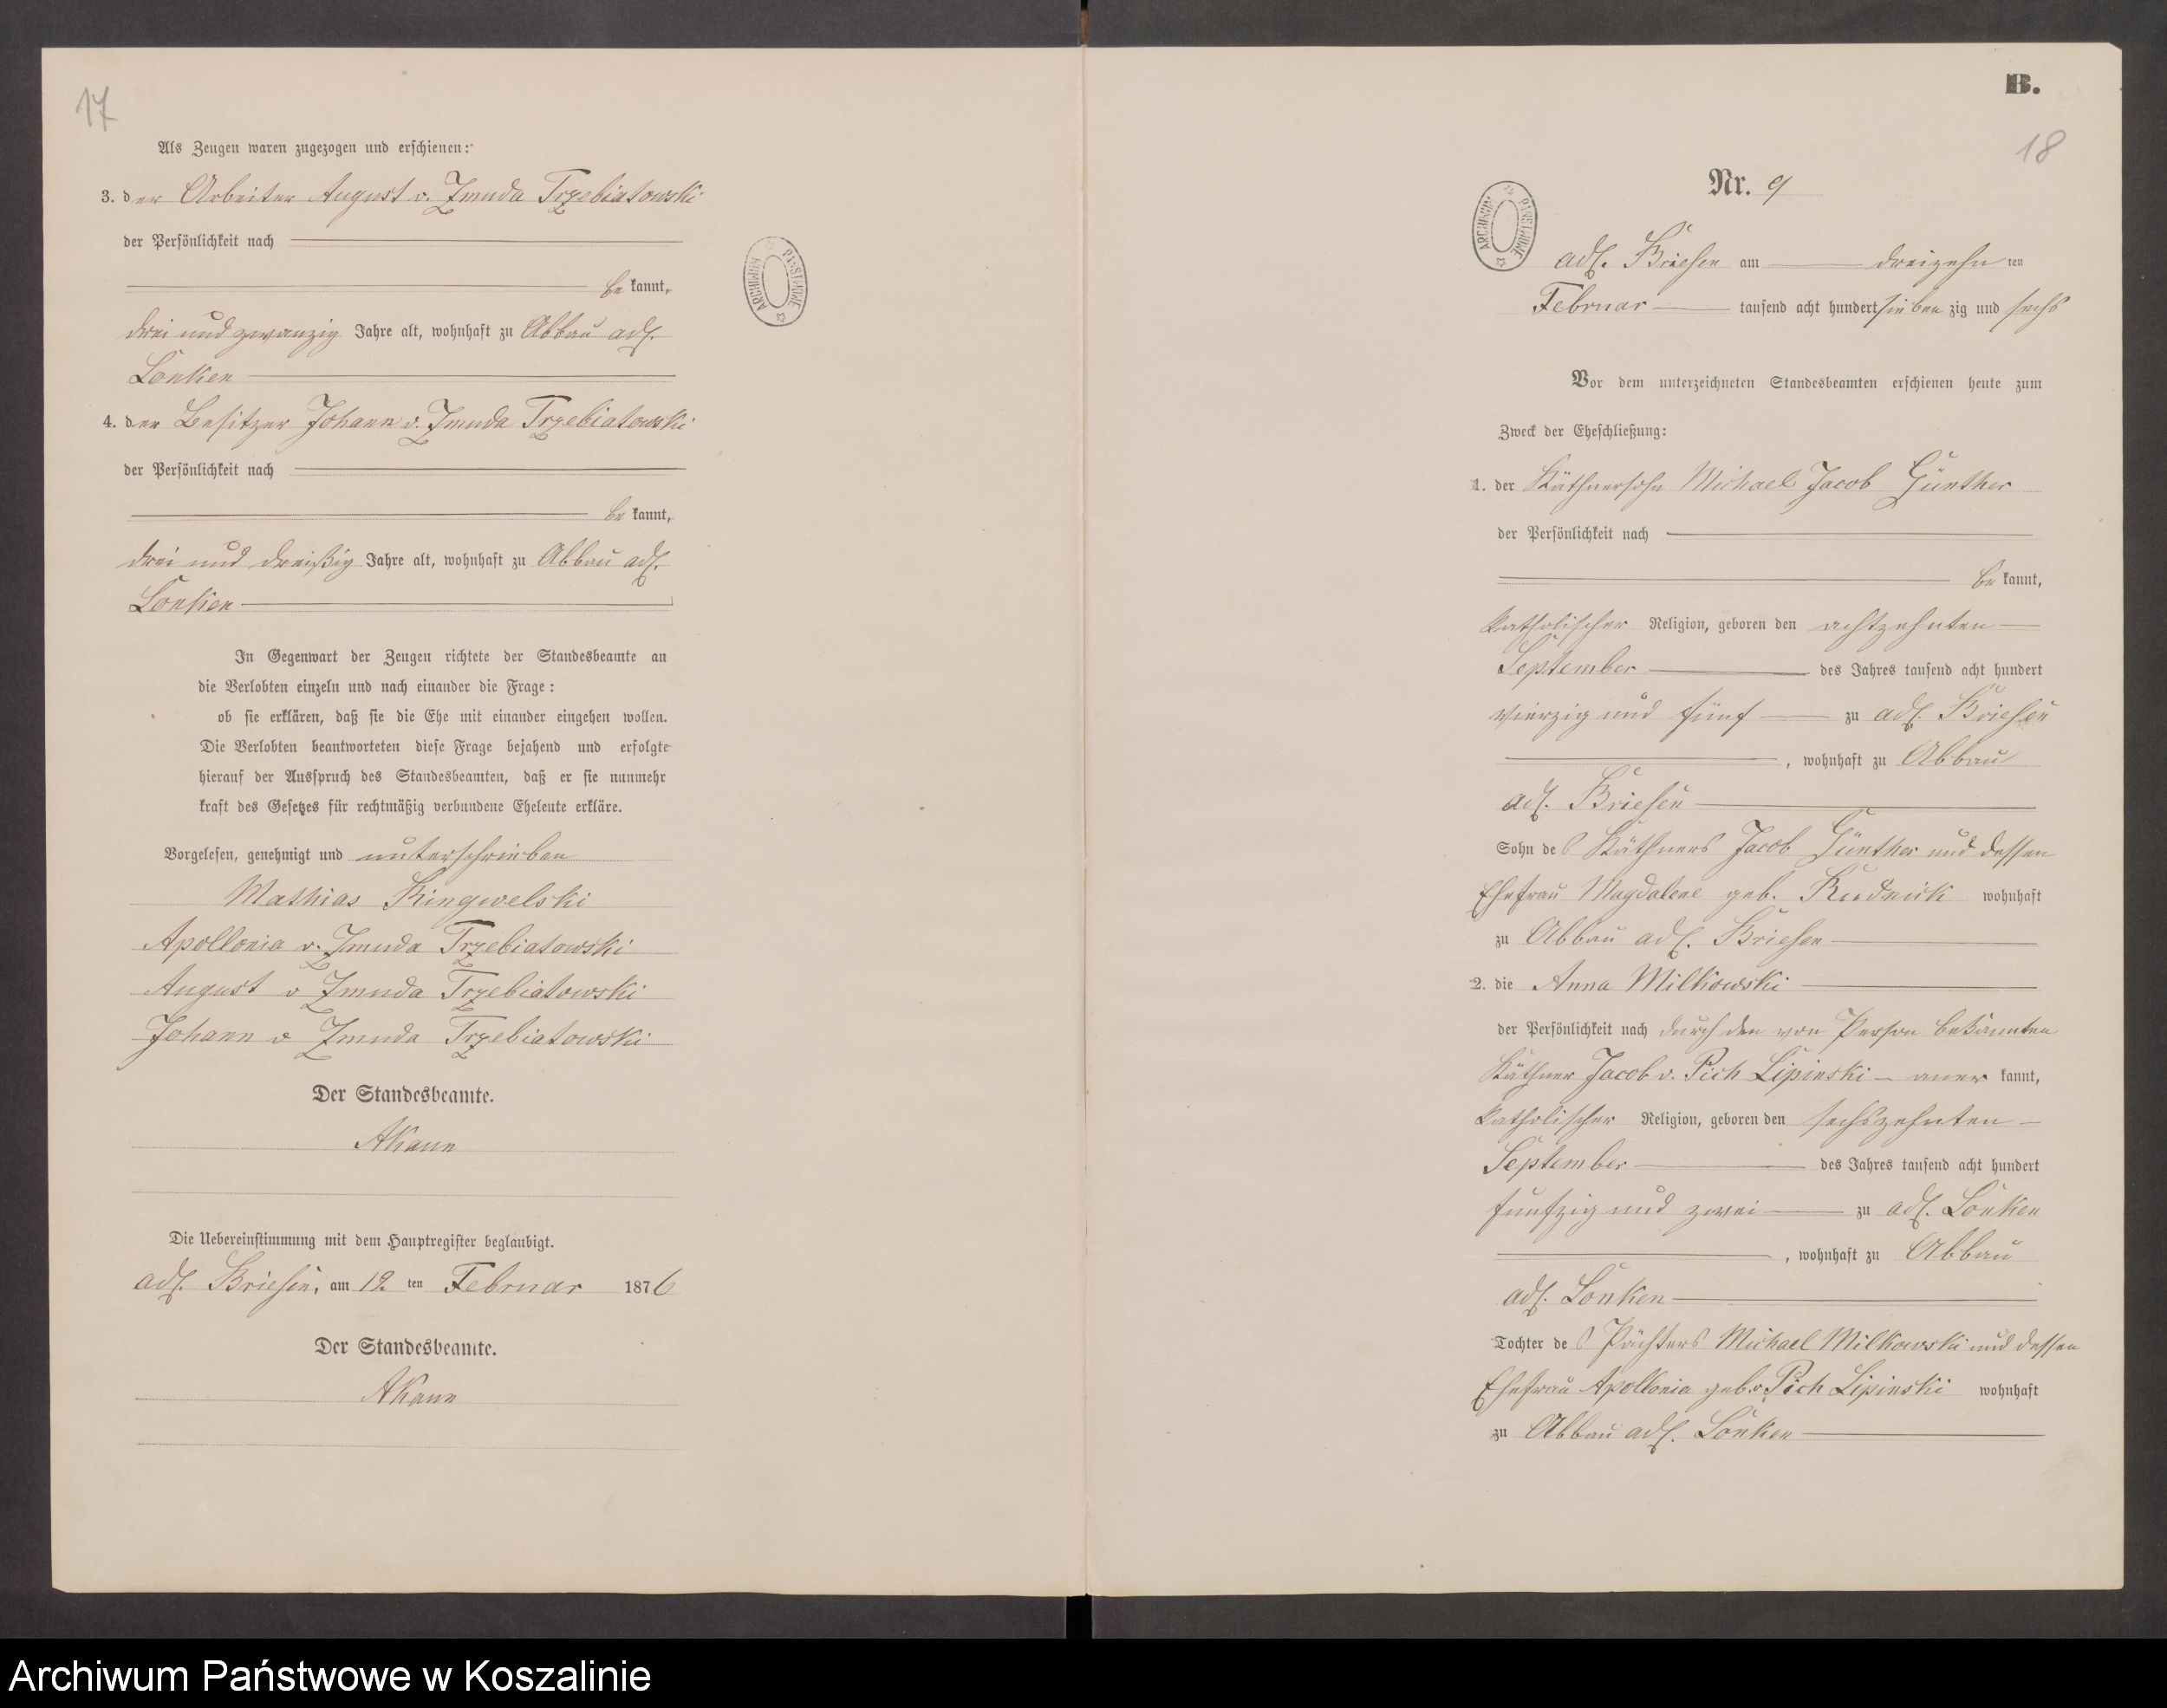 17
Als Zeugen waren zugezogen und erschienen:
3. der Arbeiter August v. Zmuda Trzebiatowski
der Persönlichkeit nach
be kannt,
drei und zwanzig Jahre alt, wohnhaft zu Abbau adl.
Lonken
4. der Besitzer Johann v. Zmuda Trzebiatowski
der Persönlichkeit nach
be kannt,
drei und dreißig Jahre alt, wohnhaft zu Abbau adl.
Lonken
In Gegenwart der Zeugen richtete der Standesbeamte an
die Verlobten einzeln und nach einander die Frage:
ob sie erklären, daß sie die Ehe mit einander eingehen wollen.
Die Verlobten beantworteten diese Frage bejahend und erfolgte
hierauf der Ausspruch des Standesbeamten, daß er sie nunmehr
kraft des Gesetzes für rechtmäßig verbundene Eheleute erkläre.
Vorgelesen, genehmigt und unterschrieben
Mathias Kingwelski
Apollonia v. Zmuda Trzebiatowski
August v Zmuda Trzebiatowski
Johann v Zmuda Trzebiatowski
Der Standesbeamte.
AKann
Die Uebereinstimmung mit dem Hauptregister beglaubigt.
adl. Briesen, am 12 ten Februar 1876
Der Standesbeamte.
AKann
ARCHIWUM PAŃSTWOWE
B.
18
Nr. 9
ARCHIWUM PAŃSTWOWE
adl. Briesen am dreizehn ten
Februar tausend acht hundert sieben zig und sechs
Vor dem unterzeichneten Standesbeamten erschienen heute zum
Zweck der Eheschließung:
1. der Käthnersohn Michael Jacob Günther
der Persönlichkeit nach
be kannt,
katholischer Religion, geboren den achtzehnten
September des Jahres tausend acht hundert
vierzig und fünf zu adl. Briesen
, wohnhaft zu Abbau
adl. Briesen
Sohn des Käthners Jacob Günther und dessen
Ehefrau Magdalene geb. Rudnick wohnhaft
zu Abbau adl. Briesen
2. die Anna Milkowski
der Persönlichkeit nach durch den von Person bekannten
Käthner Jacob v. Pich Lipinski aner kannt,
katholischer Religion, geboren den sechszehnten
September des Jahres tausend acht hundert
funfzig und zwei zu adl. Lonken
, wohnhaft zu Abbau
adl. Lonken
Tochter des Pächters Michael Milkowski und dessen
Ehefrau Apollonia geb. v. Pich Lipinski wohnhaft
zu Abbau adl. Lonken
Archiwum Państwowe w Koszalinie